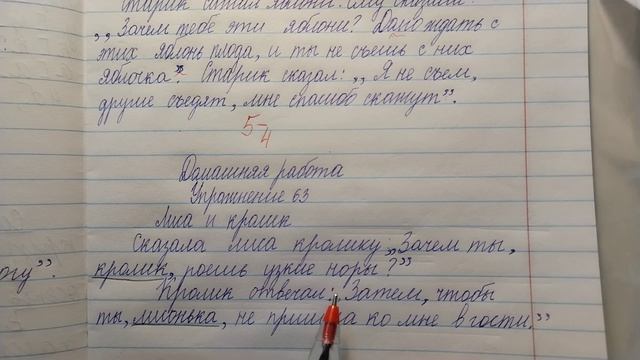 Старик сажал яблони. Ему сказали:
„Зачем тебе эти яблони? Долго ждать с
этих яблонь плода, и ты не съешь с них
яблочка". Старик сказал: „Я не съем,
другие съедят, мне спасибо скажут".
5-/4
Домашняя работа
Упражнение 63
Лиса и кролик
Сказала лиса кролику „Зачем ты,
кролик, роешь узкие норы?"
огу".
Кролик отвечал: „Затем, чтобы
ты, лисонька, не ко мне в гости."